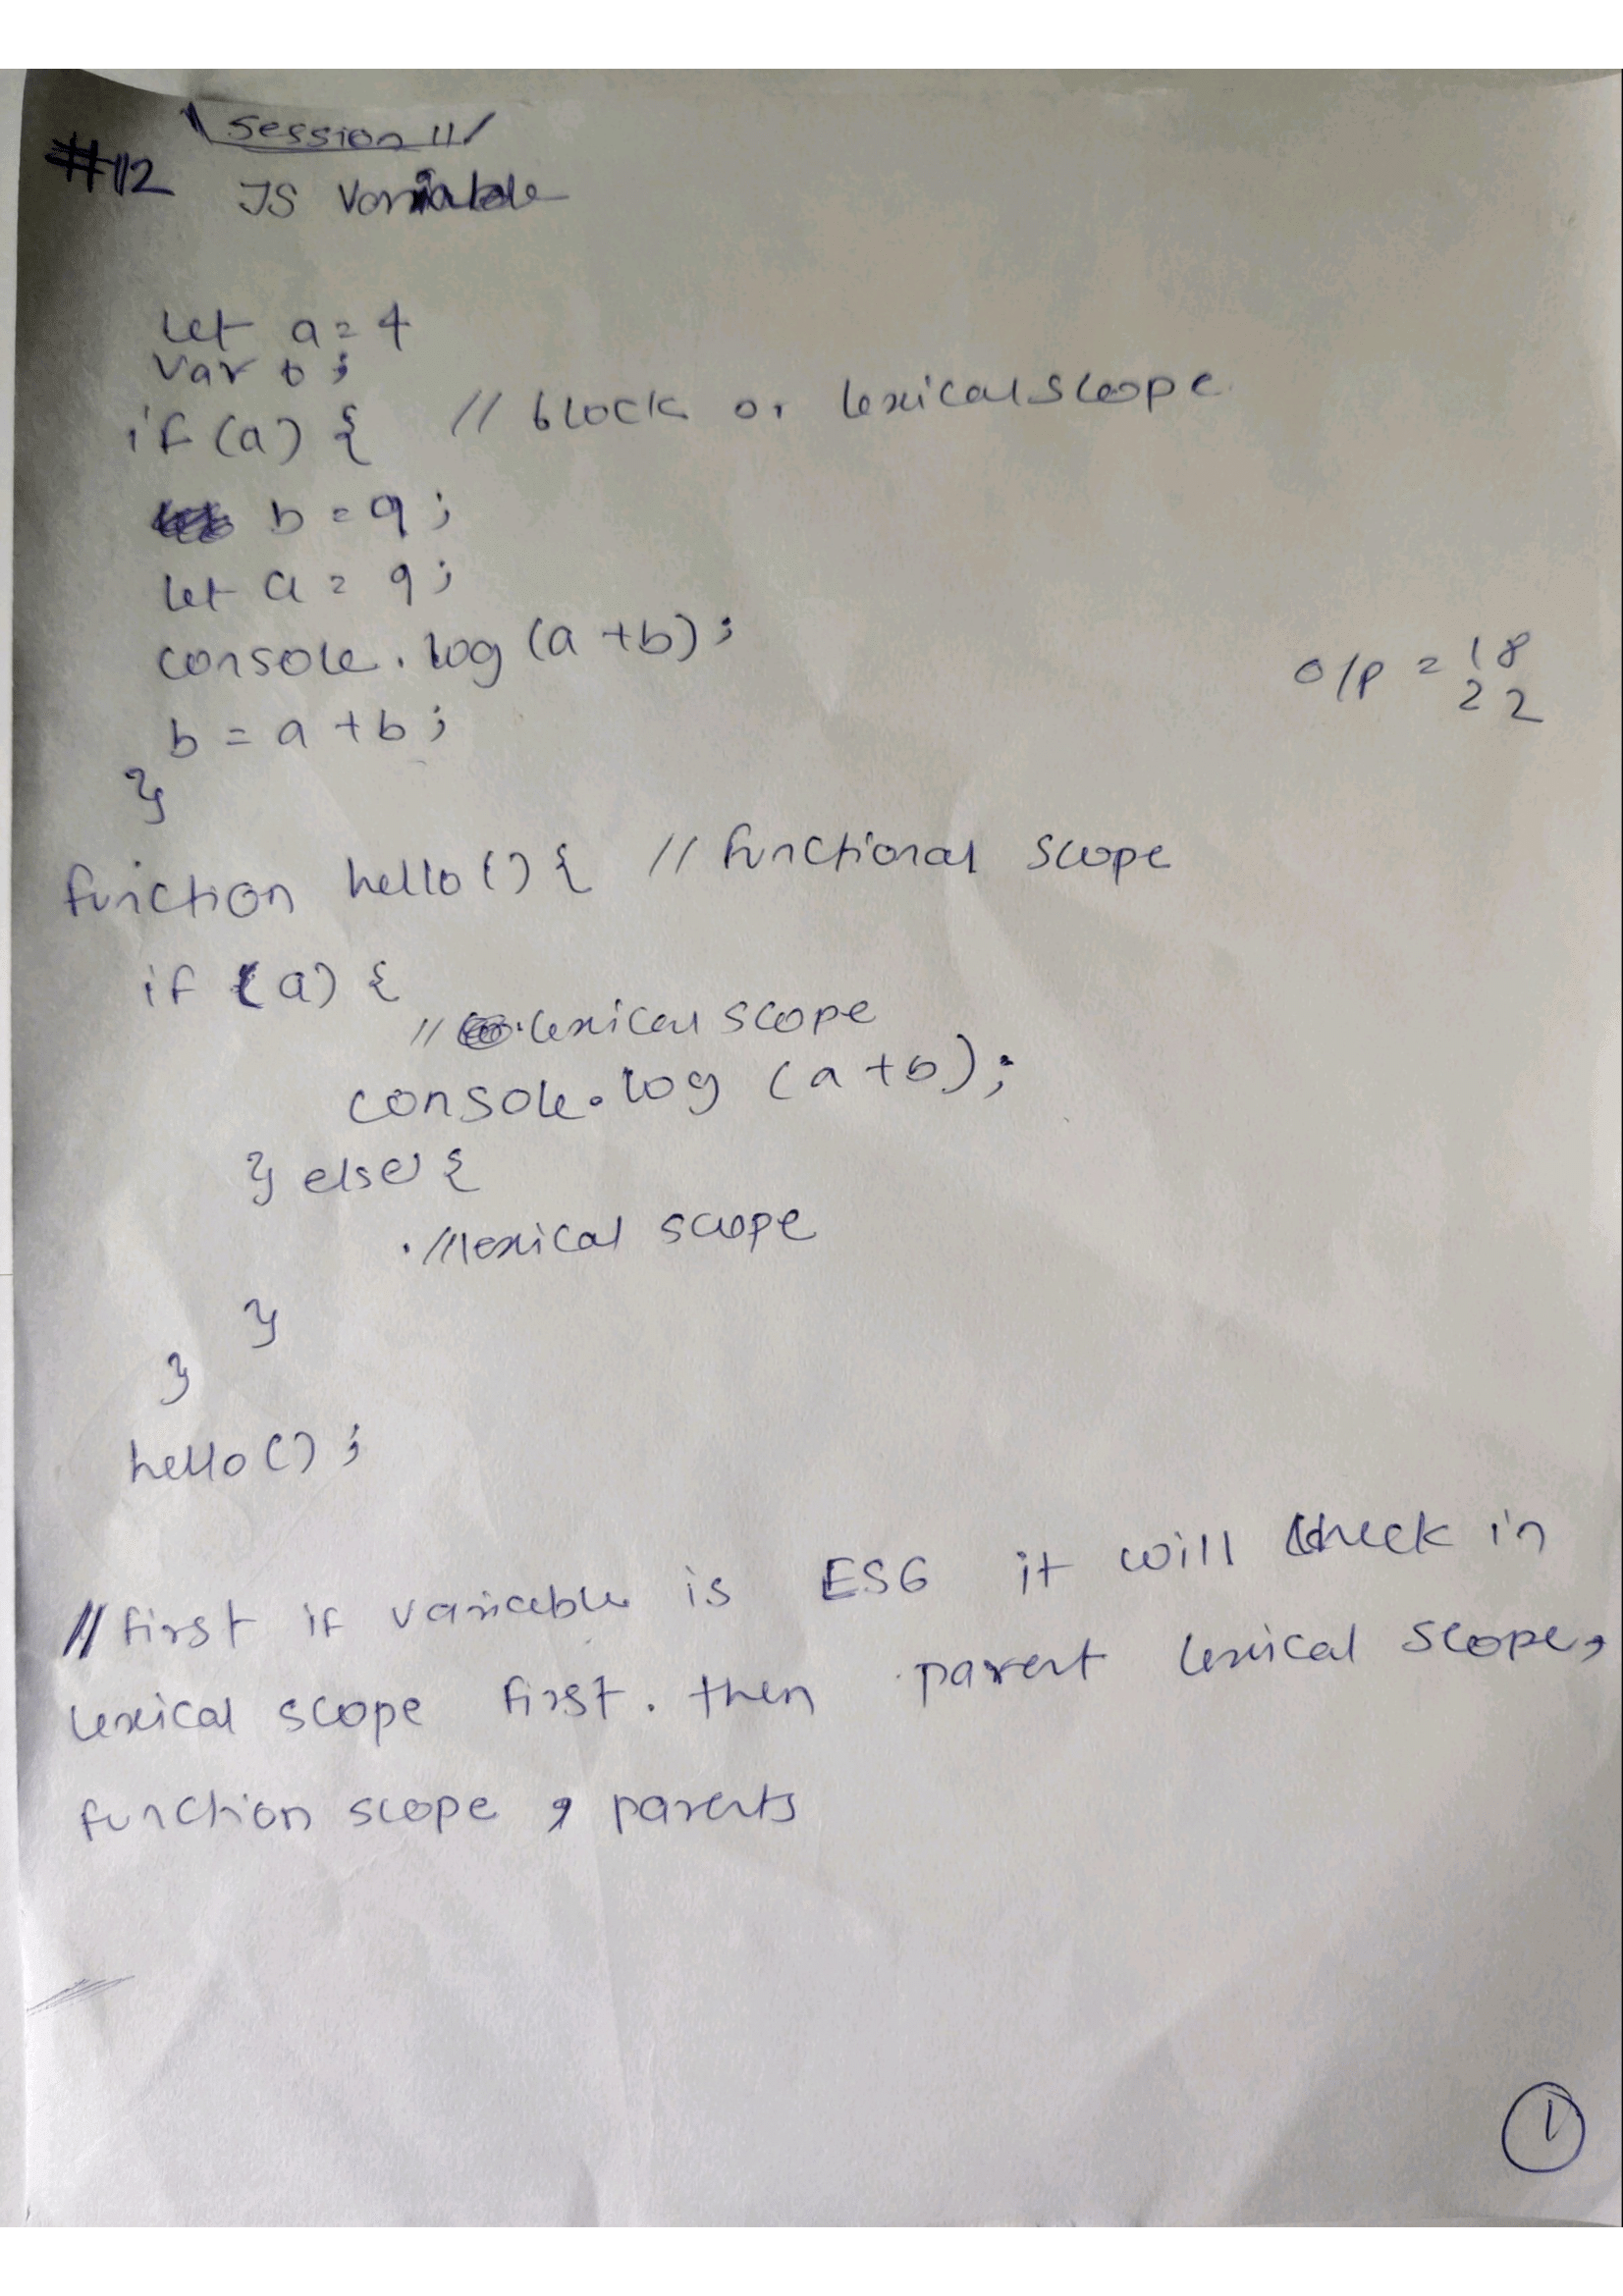 Session 11
#12 JS Variable
let a = 4
var b ;
if (a) { // block or lexical scope
b = 9 ;
let a = 9 ;
console.log (a + b) ;
o/p = 18
22
b = a + b ;
}
function hello () { // functional scope
if (a) {
// lexical scope
console.log (a + b) ;
} else {
. // lexical scope
}
}
hello () ;
// first if variable is ES6 it will check in
lexical scope first . then parent lexical scope ,
function scope , parents
1